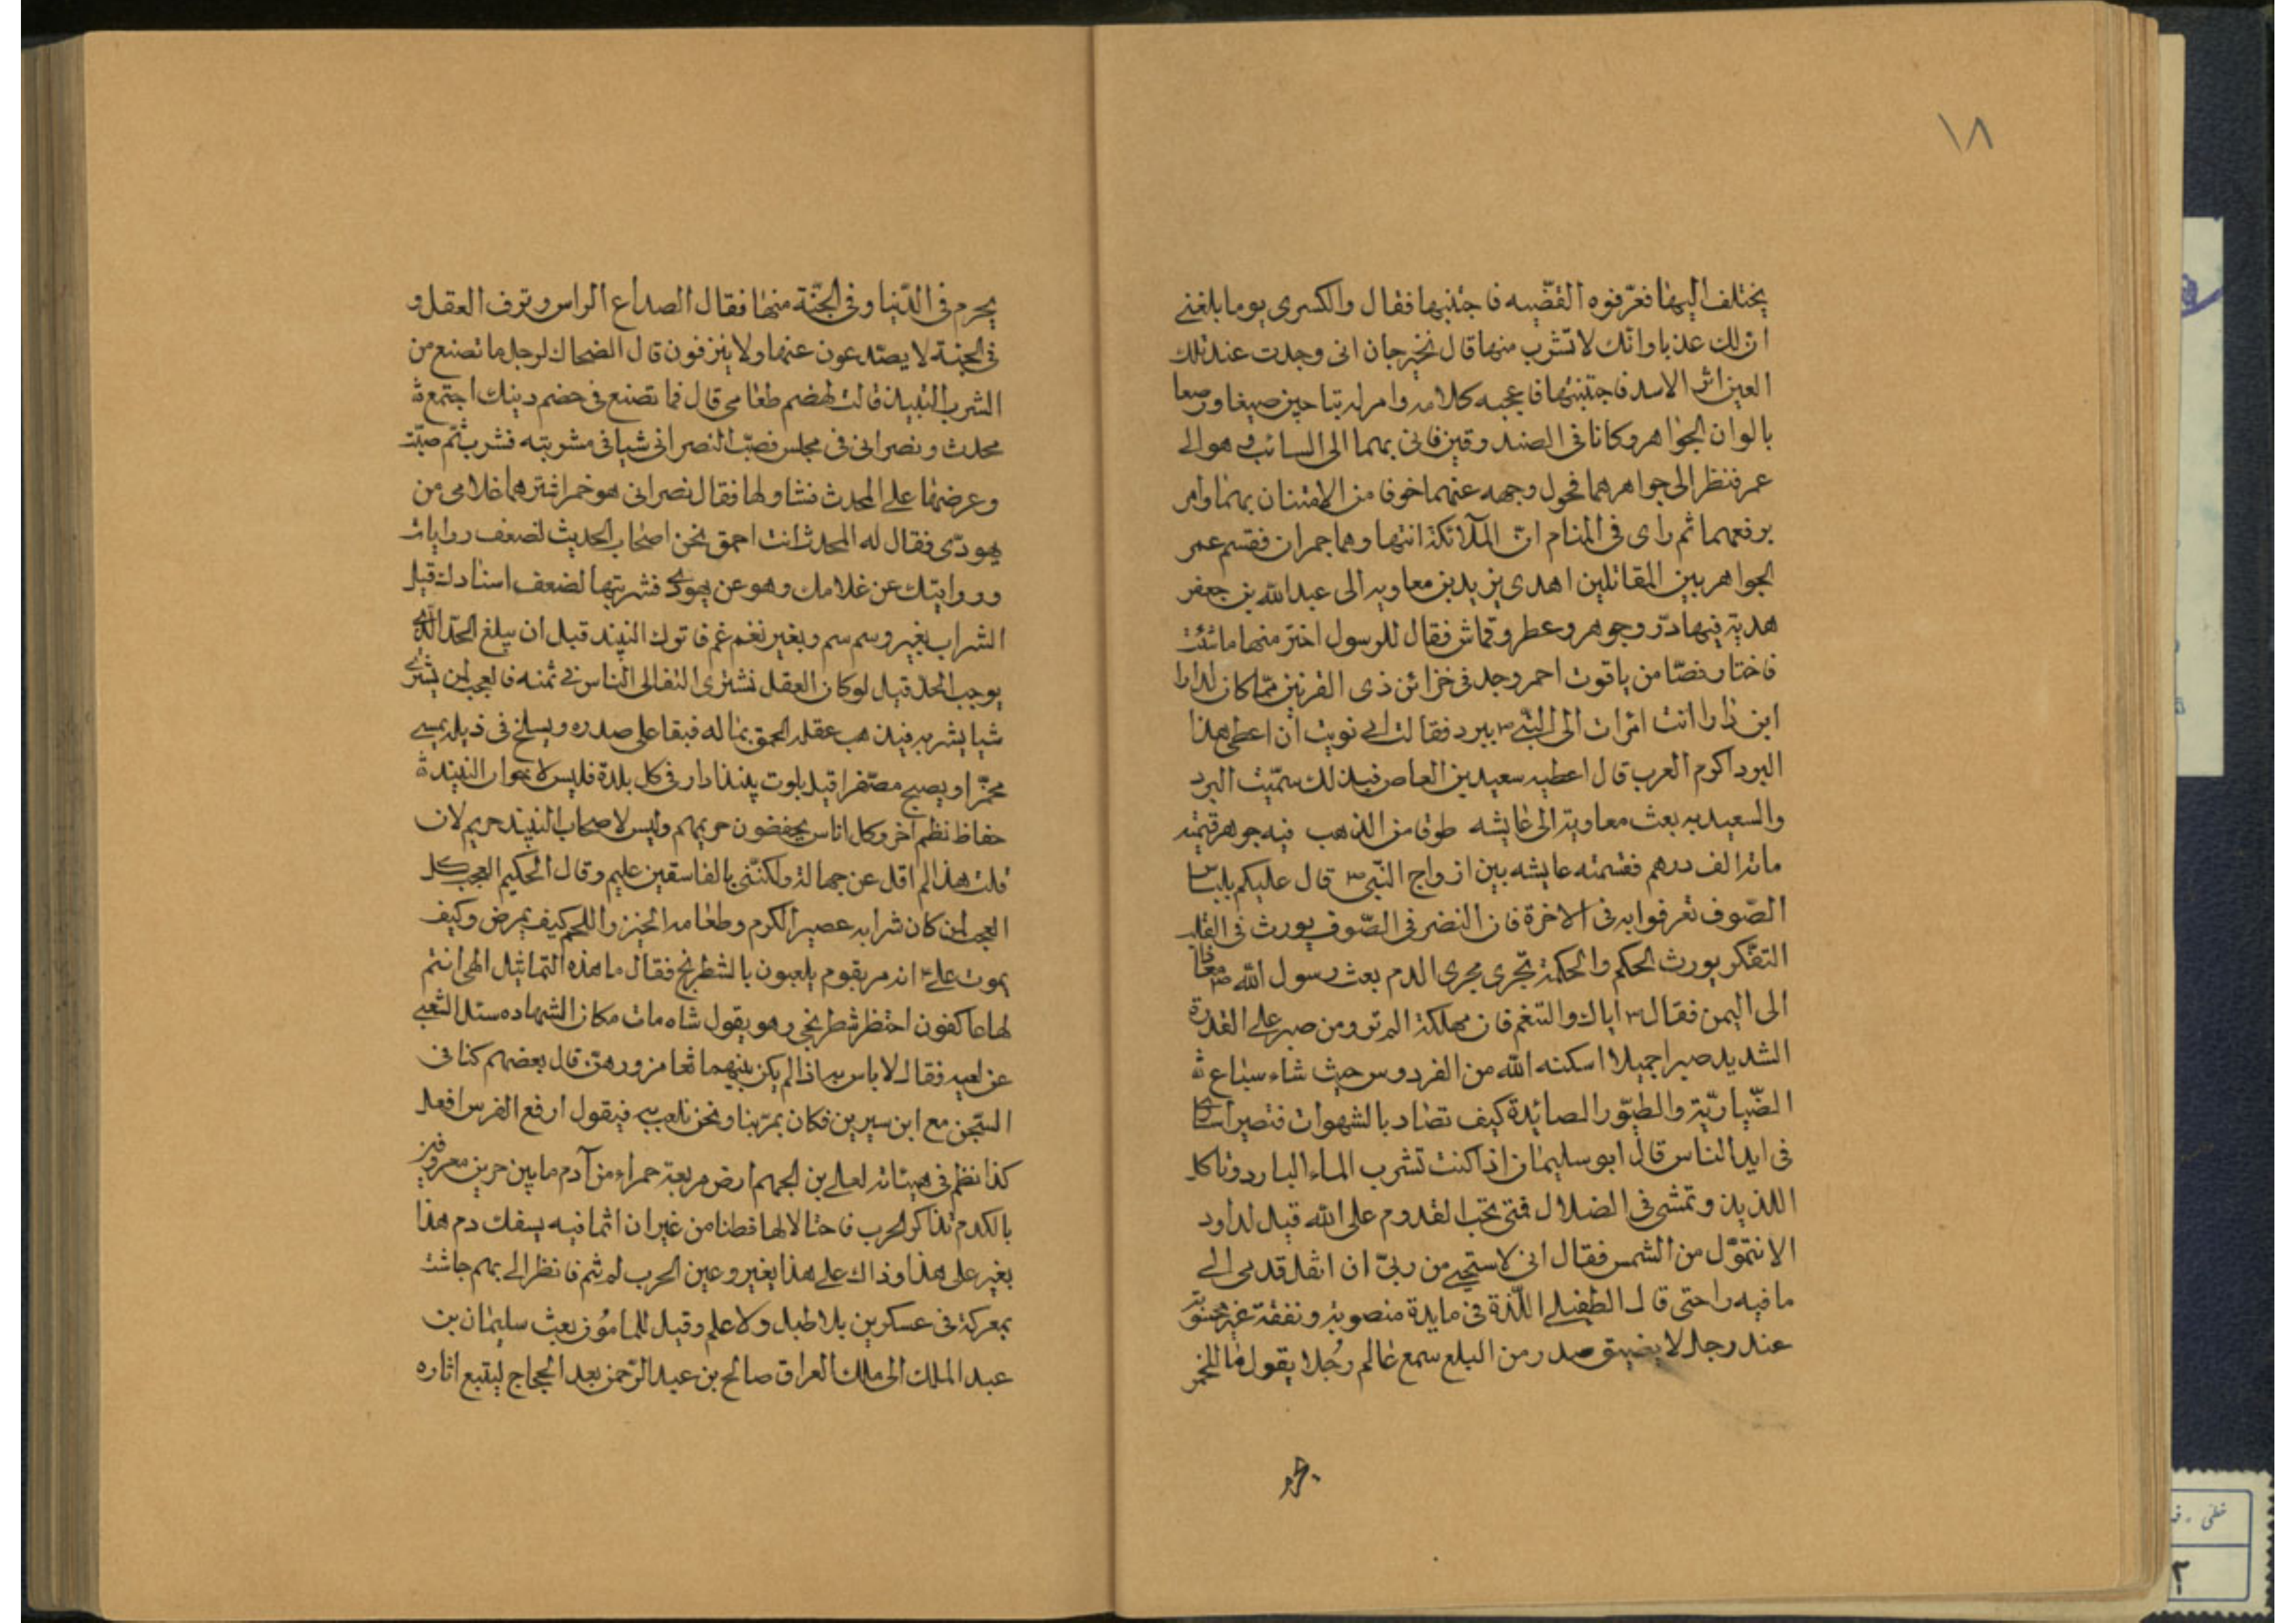 ١٨
يختلف اليها فعرّفوه القضّيه فاجتنبها فقال والكسرى يوما بلغنے
ان لك عذبا وانّك لا تشرب منها قال نخيرجان انى وجدت عند تلك
العين اثر الاسد فاجتنبتها فاعجبه كلامه وامر له بتاجين صيغا ورصعا
بالوان الجواهر وكانا فى الصندوقين فاتى بهما الى السائب هو الے
عمر فنظر الى جواهرهما فحول وجهه عنهما خوفا من الافتنان بهما وامر
برفعهما ثم راى فى المنام انّ الملآئكة اتتها وهما جمران فقسم عمر
الجواهر بين المقاتلين اهدى يزيد بن معاويه الى عبد الله بن جعفر
هدية فيها درّ وجوهر وعطر وقماش فقال للرسول اختر منها ما شئت
فاختار فصّا من ياقوت احمر وجد فى خزائن ذى القرنين ممّا كان لدارا
ابن دارا اتت امرات الى النبّى ص ببرد فقالت انى نويت ان اعطى هذا
البرد اكرم العرب قال اعطيه سعيد بن العاص فبذلك سمّيت البرد
والسعيديه بعث معاوية الى عايشه طوقا من الذهب فيه جوهر قيمته
مائة الف درهم فقسمته عايشه بين ازواج النّبى ص قال عليكم بلباس
الصّوف تعرفوا به فى الاخرة فان النضر فى الصّوف يورث فى القلب
التفكّر يورث الحكم والحكمة تجرى مجرى الدم بعث رسول الله ص معاذا
الى اليمن فقال ص اياك والتنغم فان مهلكة المترو ومن صبر على القدرة
الشديد صبرا جميلا اسكنه الله من الفردوس حيث شاء سباع ة
الضّياريّة والطيّور الصائدة كيف تصاد بالشهوات فتصير اسارى
فى ايدالناس قال ابو سليمان اذا كنت تشرب الماء البارد وتاكل
اللذيذ وتمشى فى الضلال فمتى تحب القدوم على الله قيل لداود
الا نتموّل من الشمس فقال انى لاستحيے من ربّى ان انقل قدمى الے
ما فيه راحتى قال الطفيلے اللّذة فى مايدة منصوبة ونفقة غير محسوبة
عند رجل لا يضيق صدر من البلع سمع عالم رجُلا يقول ما للخمر
يحرم
يحرم فى الدّنيا وفى الجنّة منها فقال الصداع الراس وتزف العقل و
فى الجنة لا يصدّعون عنها ولا ينزفون قال الضحاك لرجل ما تصنع من
الشرب النبيذ قالت لهضم طعامى قال فما تصنع فى هضم دينك اجتمع ة
محدث ونصرانى فى مجلس فصبّ النصرانى شيا فى مشربته فشرب ثمّ صبّت
وعرضها على المحدث فتناولها فقال نصرانى هو خمر اشترهما غلامى من
يهودّى فقال له المحدث انت احمق نحن اصحاب الحديث لضعف روايات
وروايتك عن غلامك وهو عن يهودى فشربتها لضعف اسنادك قيل
الشراب بغير وسم سم وبغير نغم غم فاترك النبيند قبل ان يبلغ الحدّ الّذے
يوجب الحدّ قيل لو كان العقل تشترى التغالى الناس فے ثمنه فالعجب لمن يشترے
شيا يشربه فيذهب عقله الحمق بماله فبقا على صدره ويسلح فى ذيله يمسے
محمّرا ويصبح مصّفرا قيل بلوت بلندا دار فى كل بلدة فليس لاخوان النبيند ة
حفاظ نظم آخر وكل اناس يحفضون حريمهم وليس لاصحاب النبيند حريم لان
قلت هذا لم اقل عن جهالة ولكننّى بالفاسقين عليم وقال الحكيم العجب كل
العجب لمن كان شرابه عصير الكرم وطعامه الخبز واللحم كيف يمرض وكيف
يموت على انه مر بقوم يلعبون بالشطرنج فقال ما هذه التماثيل الهى انتم
لها عاكفون احتظر شطرنجى وهو يقول شاه مات مكان الشهاده سئل الشعبے
عن لعبه فقال لا باس به اذا لم يكن بينهما تغامز ورهن قال بعضهم كنا فى
السّجن مع ابن سيرين فكان يمرّ بنا ونحن نلعب به فيقول ارفع الفرس افعل
كذا نظم فى هيئاته لعلے بن الجهم ارض مربعة حمراء من آدم ما بين حرين معروفين
بالكدم تذاكر الحرب فاحتالا لها فطنا من غير ان اثما فيه يسفك دم هذا
يغير على هذا وذاك على هذا يغير وعين الحرب لم تنم فانظر الے بهم جاشت
بمعركة فى عسكرين بلا طبل ولا علم وقيل للمامُون بعث سليمان بن
عبد الملك الى ملك العراق صالح بن عبد الرّحمن بعد الحجاج ليتبع اثاره
خطى
٢